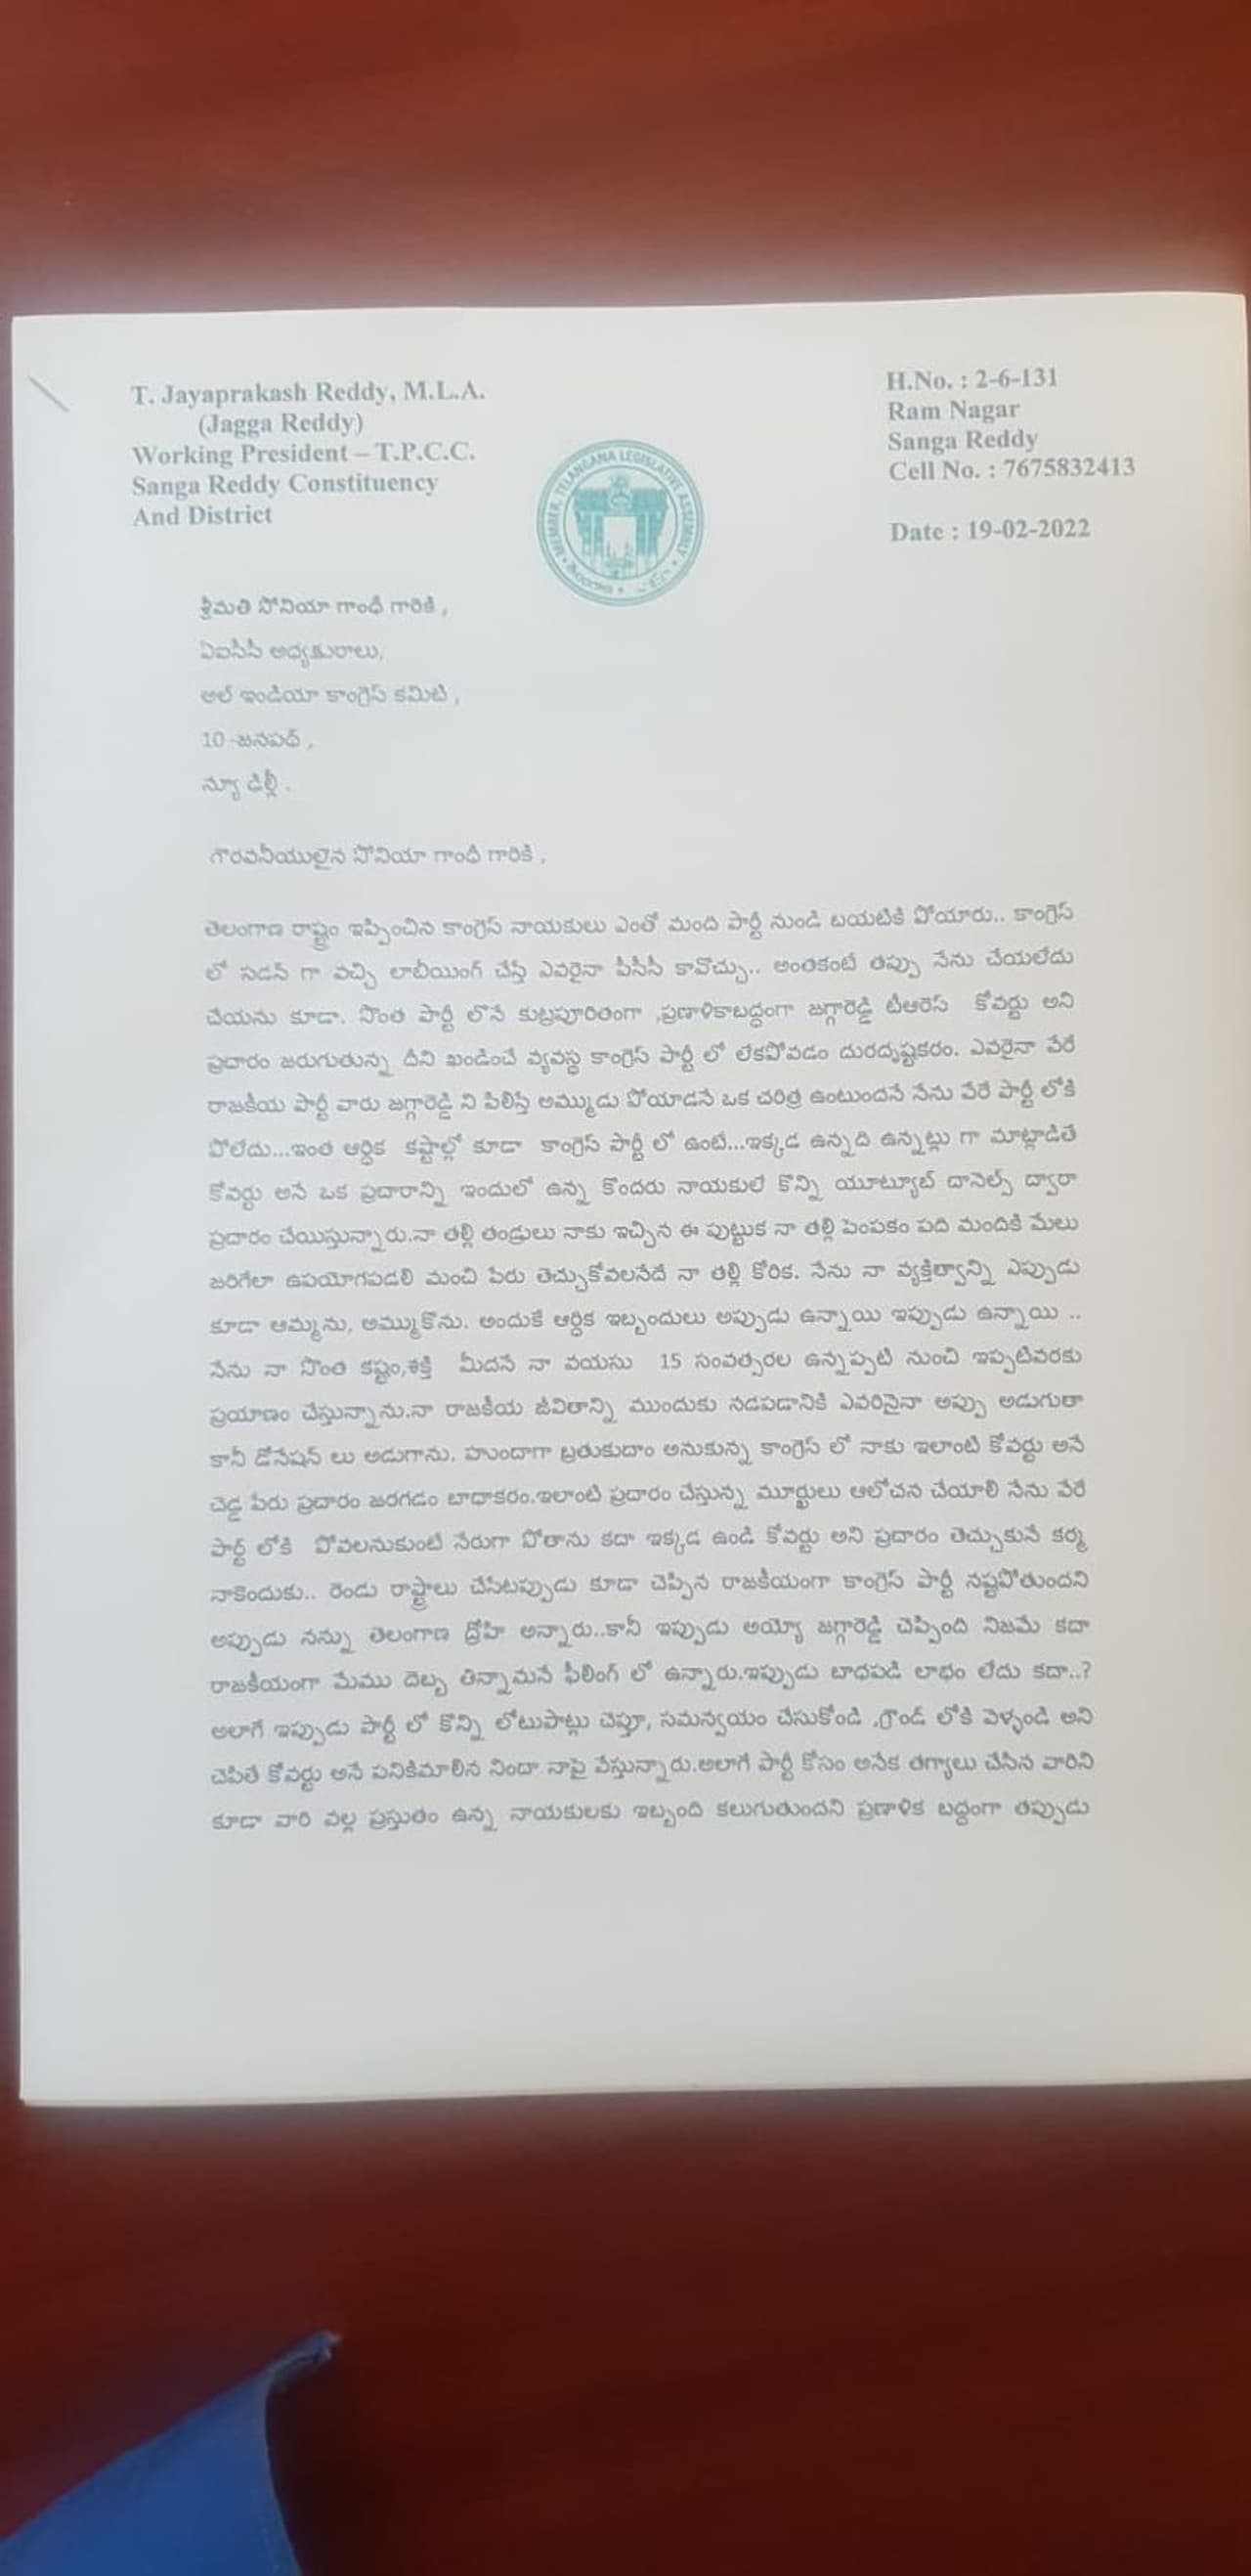 T. Jayaprakash Reddy, M.L.A.
(Jagga Reddy)
Working President – T.P.C.C.
Sanga Reddy Constituency
And District
H.No. : 2-6-131
Ram Nagar
Sanga Reddy
Cell No. : 7675832413
Date : 19-02-2022
MEMBER, TELANGANA LEGISLATIVE ASSEMBLY
శ్రీమతి సోనియా గాంధీ గారికి ,
ఏఐసీసీ అధ్యక్షురాలు,
ఆల్ ఇండియా కాంగ్రెస్ కమిటి ,
10 -జనపథ్ ,
న్యూ ఢిల్లీ .
గౌరవనీయులైన సోనియా గాంధీ గారికి ,
తెలంగాణ రాష్ట్రం ఇప్పించిన కాంగ్రెస్ నాయకులు ఎంతో మంది పార్టీ నుండి బయటికి పోయారు.. కాంగ్రెస్
లో సడన్ గా వచ్చి లాబీయింగ్ చేస్తే ఎవరైనా పీసీసీ కావొచ్చు.. అంతకంటే తప్పు నేను చేయలేదు
చేయను కూడా. సొంత పార్టీ లోనే కుట్రపూరితంగా ,ప్రణాళికాబద్ధంగా జగ్గారెడ్డి టీఆరెస్ కోవర్టు అని
ప్రచారం జరుగుతున్న దీని ఖండించే వ్యవస్థ కాంగ్రెస్ పార్టీ లో లేకపోవడం దురదృష్టకరం. ఎవరైనా వేరే
రాజకీయ పార్టీ వారు జగ్గారెడ్డి ని పిలిస్తే అమ్ముడు పోయాడనే ఒక చరిత్ర ఉంటుందనే నేను వేరే పార్టీ లోకి
పోలేదు...ఇంత ఆర్ధిక కష్టాల్లో కూడా కాంగ్రెస్ పార్టీ లో ఉంటే...ఇక్కడ ఉన్నది ఉన్నట్లు గా మాట్లాడితే
కోవర్టు అనే ఒక ప్రచారాన్ని ఇందులో ఉన్న కొందరు నాయకులే కొన్ని యూట్యూబ్ చానెల్స్ ద్వారా
ప్రచారం చేయిస్తున్నారు.నా తల్లి తండ్రులు నాకు ఇచ్చిన ఈ పుట్టుక నా తల్లి పెంపకం పది మందికి మేలు
జరిగేలా ఉపయోగపడలి మంచి పేరు తెచ్చుకోవలనేదే నా తల్లి కోరిక. నేను నా వ్యక్తిత్వాన్ని ఎప్పుడు
కూడా ఆమ్మను, అమ్ముకొను. అందుకే ఆర్ధిక ఇబ్బందులు అప్పుడు ఉన్నాయి ఇప్పుడు ఉన్నాయి ..
నేను నా సొంత కష్టం,శక్తి మీదనే నా వయసు 15 సంవత్సరల ఉన్నప్పటి నుంచి ఇప్పటివరకు
ప్రయాణం చేస్తున్నాను.నా రాజకీయ జీవితాన్ని ముందుకు నడపడానికి ఎవరినైనా అప్పు అడుగుతా
కానీ డోనేషన్ లు అడుగాను. హుందాగా బ్రతుకుదాం అనుకున్న కాంగ్రెస్ లో నాకు ఇలాంటి కోవర్టు అనే
చెడ్డ పేరు ప్రచారం జరగడం బాదాకరం.ఇలాంటి ప్రచారం చేస్తున్న మూర్ఖులు ఆలోచన చేయాలి నేను వేరే
పార్టీ లోకి పోవలనుకుంటే నేరుగా పోతాను కదా ఇక్కడ ఉండి కోవర్టు అని ప్రచారం తెచ్చుకునే కర్మ
నాకెందుకు.. రెండు రాష్ట్రాలు చేసేటప్పుడు కూడా చెప్పిన రాజకీయంగా కాంగ్రెస్ పార్టీ నష్టపోతుందని
అప్పుడు నన్ను తెలంగాణ ద్రోహి అన్నారు..కానీ ఇప్పుడు అయ్యో జగ్గారెడ్డి చెప్పింది నిజమే కదా
రాజకీయంగా మేము దెబ్బ తిన్నామనే ఫీలింగ్ లో ఉన్నారు.ఇప్పుడు బాధపడి లాభం లేదు కదా..?
అలాగే ఇప్పుడు పార్టీ లో కొన్ని లోటుపాట్లు చెప్తూ, సమన్వయం చేసుకోండి ,గ్రౌండ్ లోకి వెళ్ళండి అని
చెపితే కోవర్టు అనే పనికిమాలిన నిందా నాపై వేస్తున్నారు.అలాగే పార్టీ కోసం అనేక తగ్యాలు చేసిన వారిని
కూడా వారి వల్ల ప్రస్తుతం ఉన్న నాయకులకు ఇబ్బంది కలుగుతుందని ప్రణాళిక బద్దంగా తప్పుడు